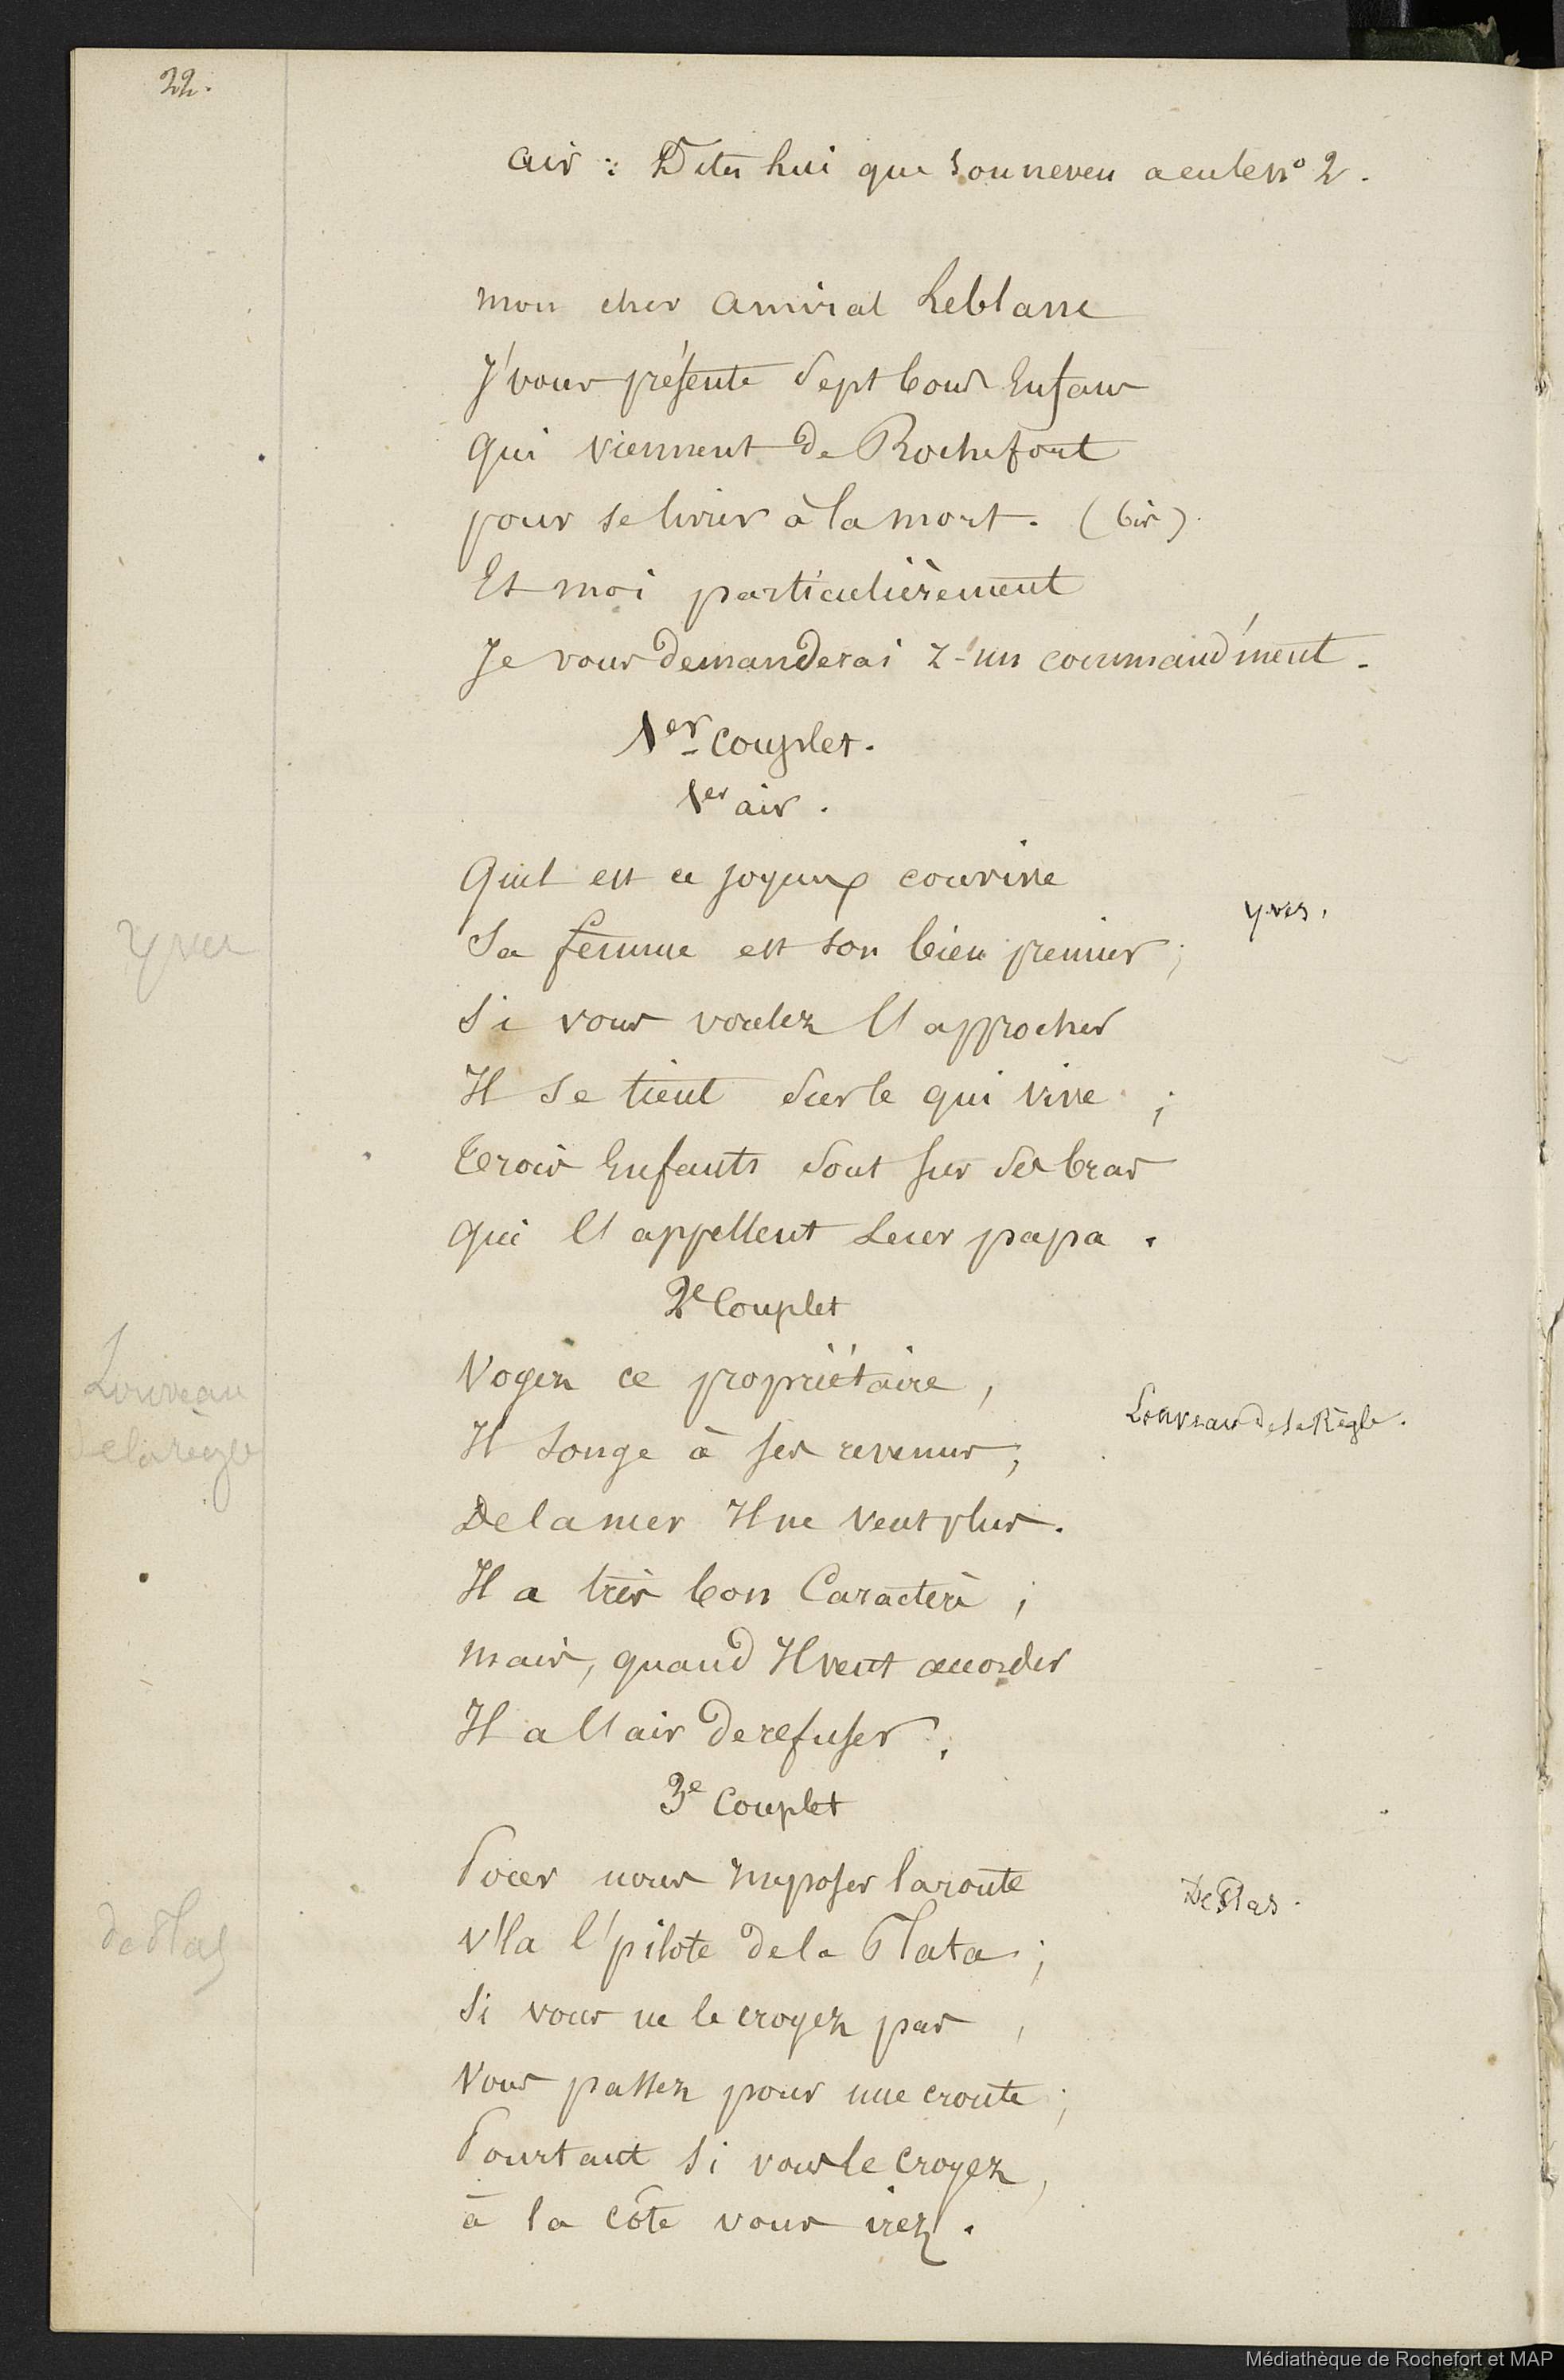 22.
air : Dites lui que son neveu a eu le n° 2.
mon cher amiral Leblanc
J'vous présente sept bons Enfans
qui viennent de Rochefort
pour se livrer à la mort. (bis)
Et moi particulièrement
Je vous demanderai z-un command'ment.
1er couplet.
1er air.
Quel est ce joyeux convive
yves.
Yves
Sa femme est son bien premier ;
Si vous voulez l'approcher
Il se tient sur le qui vive ;
Trois Enfants sont sur ses bras
qui l'appellent leur papa.
2e Couplet
Voyez ce propriétaire,
Louveau
Louveau de la Règle.
Il songe à ses revenus,
de la règle
De la mer Il ne veut plus.
Il a très bon Caractère ;
mais, quand Il veut accorder
Il a l'air de refuser.
3e Couplet
Pour nous imposer la route
De Plas.
de Plas
v'la l'pilote de la Plata ;
Si vous ne le croyez pas,
Vous passez pour une croute ;
Pourtant si vous le croyez,
à la côte vous irez.
Médiathèque de Rochefort et MAP